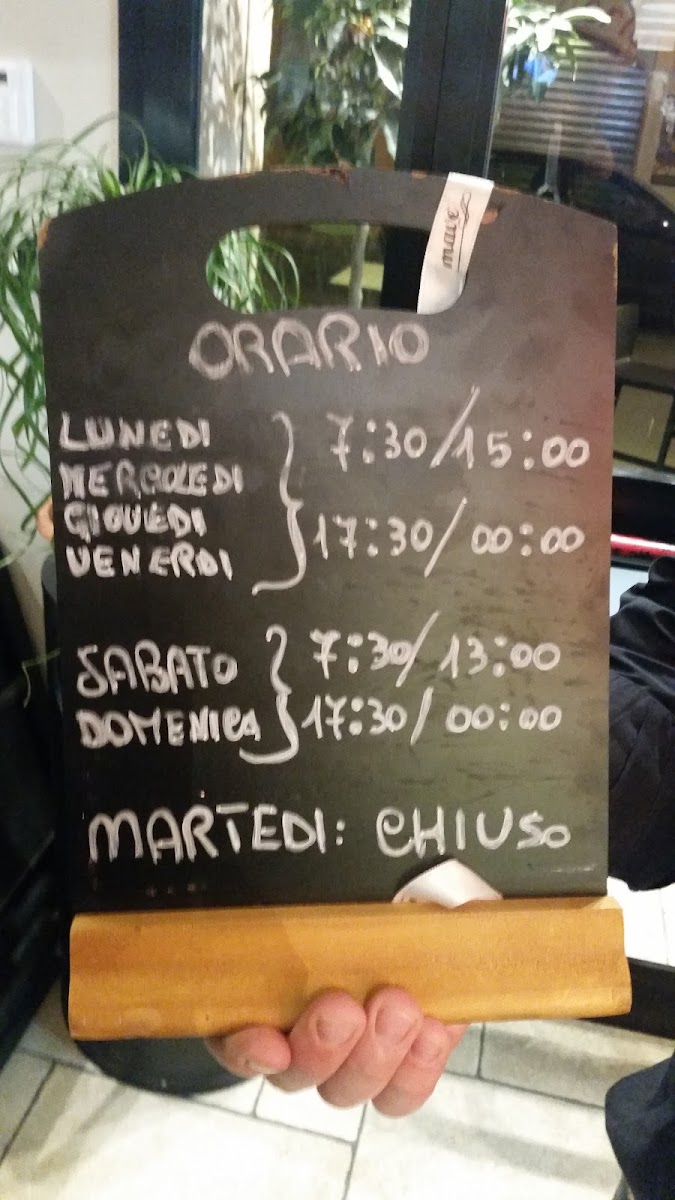 ORARIO
LUNEDI
MERCOLEDI
GIOVEDI
VENERDI
7:30/15:00
17:30/00:00
SABATO
DOMENICA
7:30/13:00
17:30/00:00
MARTEDI: CHIUSO